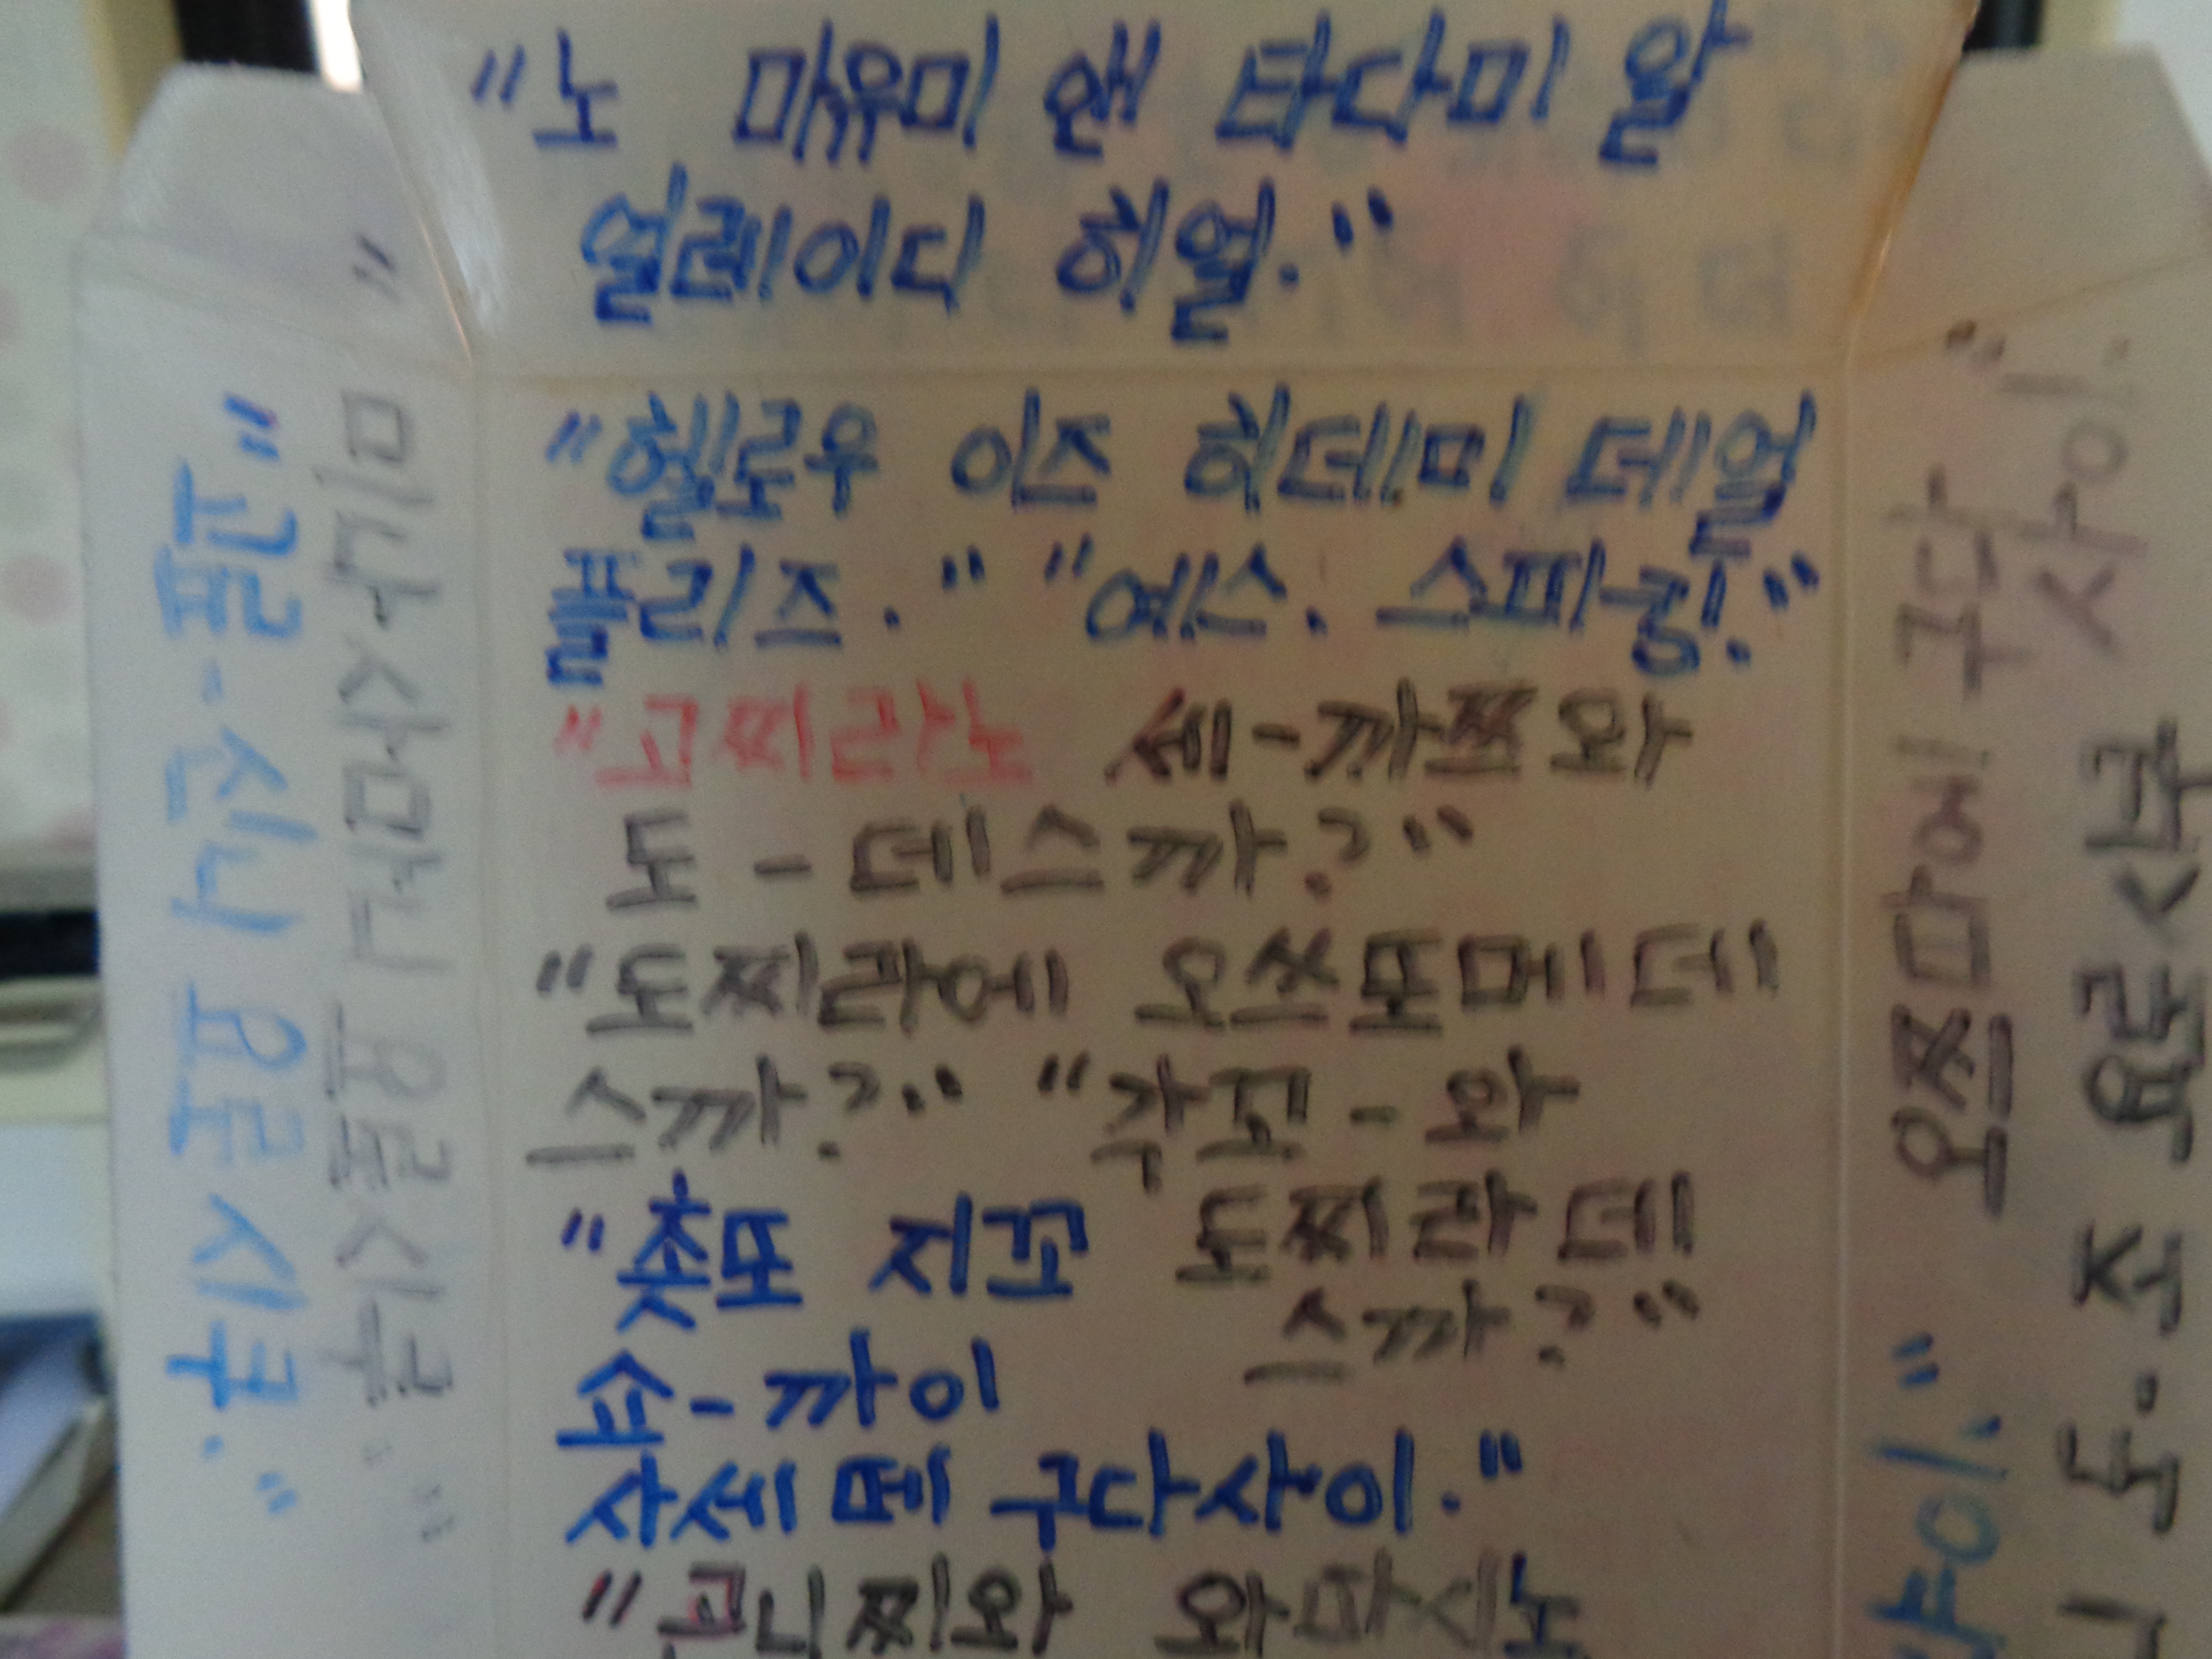 "노 마유미 앤 타다미 알
얼레이디 히얼."
"헬로우 이즈 히데미 데얼
플리즈." "예스. 스피킹."
"고찌라노 세-까쯔와
도-데스까?"
"도찌라에 오쓰또메데
스까?" "각꼬-와
도찌라데
스까?"
"춋또 지꼬
쇼-까이
사세떼 구다사이."
"곤니찌와 와따시노
미나사마니 요로시구."
"고로-신니 요로시구."
오쯔마에 구다
사이."
도-조 요로시구